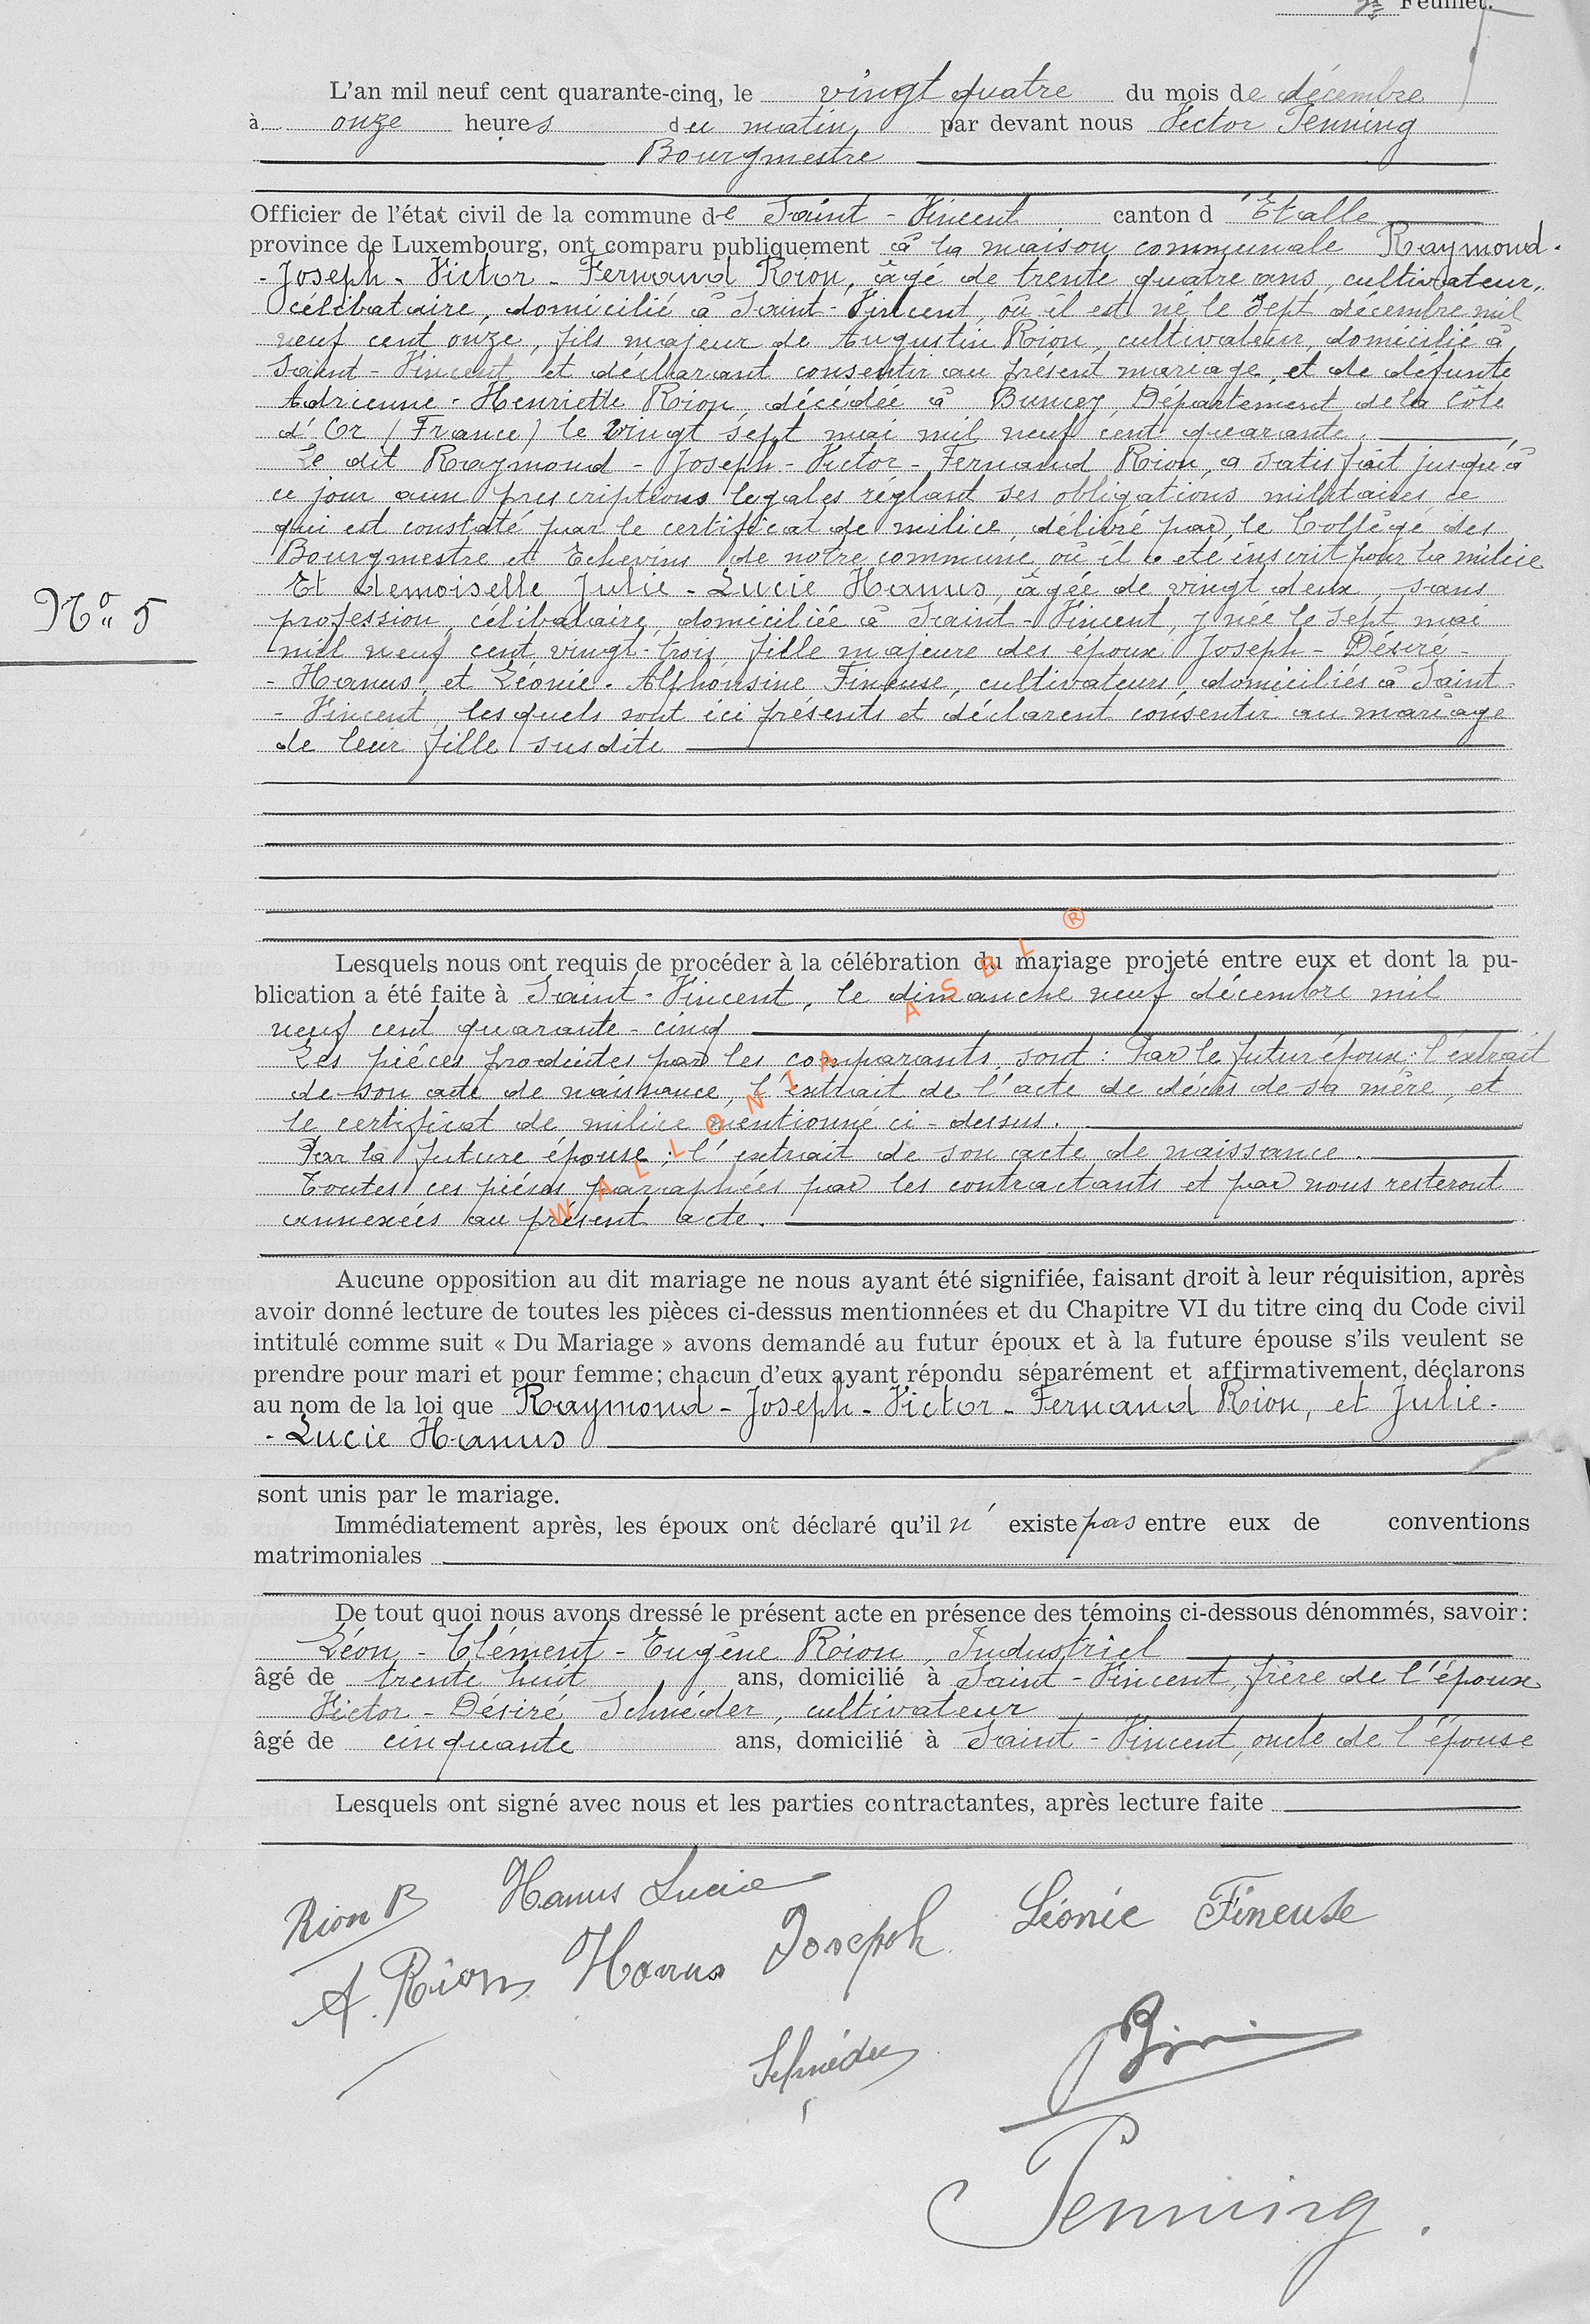 Feuillet.
L'an mil neuf cent quarante-cinq, le vingt quatre du mois de décembre
à onze heures du matin, par devant nous Victor Jenning
Bourgmestre
Officier de l'état civil de la commune de Saint-Vincent canton d'Etalle
province de Luxembourg, ont comparu publiquement à la maison communale Raymond-
-Joseph-Victor-Fernand Rion, âgé de trente quatre ans, cultivateur,
célibataire, domicilié à Saint-Vincent, où il est né le sept décembre mil
neuf cent onze, fils majeur de Augustin Rion, cultivateur, domicilié à
Saint-Vincent et déclarant consentir au présent mariage, et de défunte
Adrienne-Henriette Rion, décédée à Buncey, Département de la Côte
d'Or (France) le vingt sept mai mil neuf cent quarante.
Le dit Raymond-Joseph-Victor-Fernand Rion, a satisfait jusqu'à
ce jour aux prescriptions légales réglant ses obligations militaires, ce
qui est constaté par le certificat de milice, délivré par le Collège des
Bourgmestre et Echevins de notre commune où il a été inscrit pour la milice
N° 5
Et demoiselle Julie-Lucie Hanus, âgée de vingt deux, sans
profession, célibataire, domiciliée à Saint-Vincent, y née le sept mai
mil neuf cent vingt-trois, fille majeure des époux Joseph-Désiré-
-Hanus, et Léonie-Alphonsine Fineuse, cultivateurs, domiciliés à Saint-
-Vincent, lesquels sont ici présents et déclarent consentir au mariage
de leur fille susdite
Lesquels nous ont requis de procéder à la célébration du mariage projeté entre eux et dont la pu-
blication a été faite à Saint-Vincent, le dimanche neuf décembre mil
neuf cent quarante-cinq
Les pièces produites par les comparants, sont: Par le futur époux: l'extrait
de son acte de naissance, l'extrait de l'acte de décès de sa mère, et
le certificat de milice mentionné ci-dessus.
Par la future épouse: l'extrait de son acte de naissance.
Toutes ces pièces paraphées par les contractants et par nous resteront
annexées au présent acte.
WALLONIA ASBL ®
Aucune opposition au dit mariage ne nous ayant été signifiée, faisant droit à leur réquisition, après
avoir donné lecture de toutes les pièces ci-dessus mentionnées et du Chapitre VI du titre cinq du Code civil
intitulé comme suit « Du Mariage » avons demandé au futur époux et à la future épouse s'ils veulent se
prendre pour mari et pour femme; chacun d'eux ayant répondu séparément et affirmativement, déclarons
au nom de la loi que Raymond-Joseph-Victor-Fernand Rion, et Julie-
-Lucie Hanus
sont unis par le mariage.
Immédiatement après, les époux ont déclaré qu'il n'existe pas entre eux de conventions
matrimoniales
De tout quoi nous avons dressé le présent acte en présence des témoins ci-dessous dénommés, savoir:
Léon-Clément-Eugène Rion, Industriel
âgé de trente huit ans, domicilié à Saint-Vincent, frère de l'époux
Victor-Désiré Schnéder, cultivateur
âgé de cinquante ans, domicilié à Saint-Vincent, oncle de l'épouse
Lesquels ont signé avec nous et les parties contractantes, après lecture faite
Rion R Hanus Lucie
A. Rion Hanus Joseph Léonie Fineuse
Schnéder
Jenning.